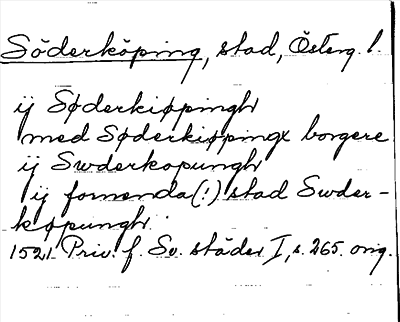 Söderköping, stad, Österg. l.
ij Søderkiøpingh
med Søderkiøpingx borgere
ij Swderkopungh
ij fornenda(!) stad Swder-
køpungh.
1521 Priv. f. Sv. städer I, s. 265. orig.